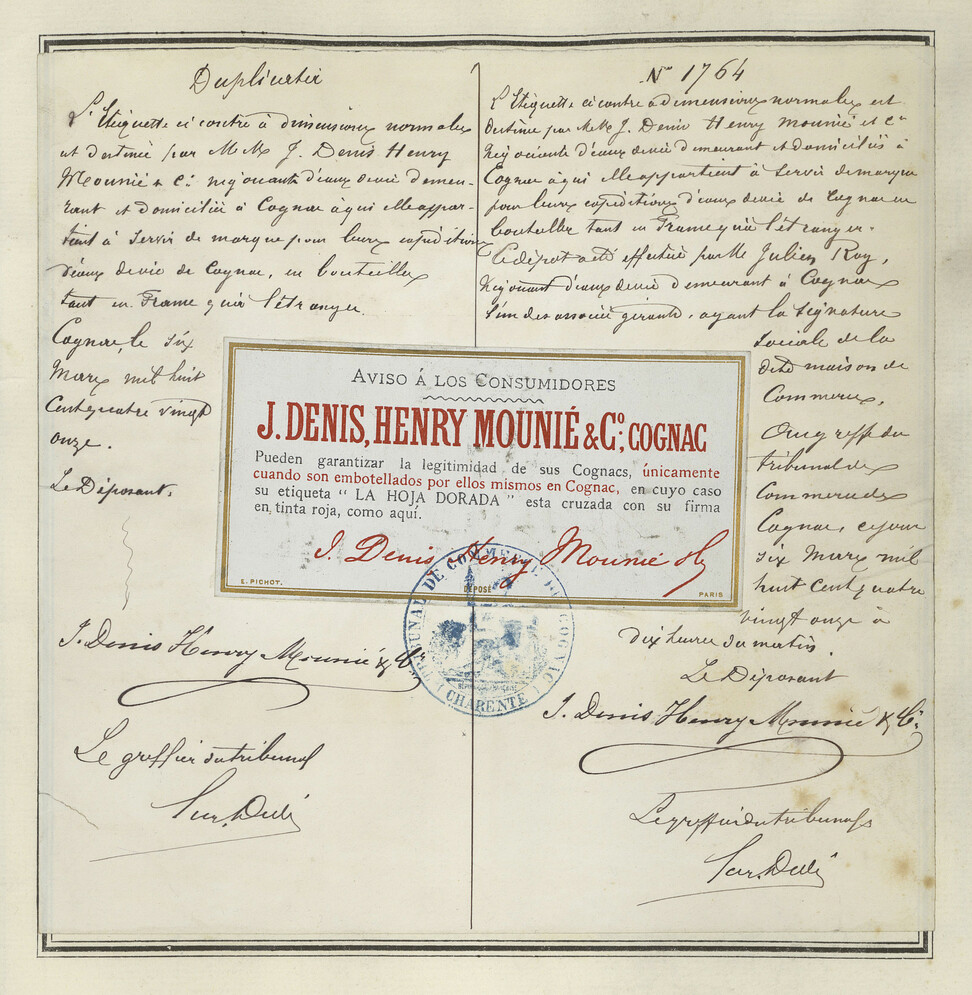 Duplicata
L'Etiquette ci contre à dimensions normales
est destinée par M M J. Denis Henry
Mounié & Cie négociants d'eaux devie demeu-
rant et domiciliés à Cognac à qui elle appar-
tient à servir de marque pour leurs expéditions
d'eaux de vie de Cognac, en bouteilles
tant en France qu'à l'étranger.
Cognac, le six
Mars mil huit
Cent quatre vingt
onze.
Le Déposant.
J. Denis Henry Mounié & Cie
Le greffier du tribunal
No 1764
L'Etiquette ci contre à dimensions normales est
destinée par M.M. J. Denis Henry Mounié et Cie
Négociants d'eaux devie demeurant et domiciliés à
Cognac à qui elle appartient à servir de marque
pour leurs expéditions d'eaux de vie de Cognac en
bouteilles tant en France qu'à l'étranger.
Ce dépot a été effectué par M. Julien Roy,
Négociant d'eaux devie demeurant à Cognac
l'un des associés gérants, ayant la signature
sociale de la
dite maison de
Commerce,
Au greffe du
tribunal de
Commerce de
Cognac, ce jour
six Mars mil
huit Cent quatre
vingt onze à
dix heures du matin.
Le Déposant
J. Denis Henry Mounié & Cie
Le greffier du tribunal
AVISO Á LOS CONSUMIDORES
J. DENIS, HENRY MOUNIÉ & Co., COGNAC
Pueden garantizar la legitimidad de sus Cognacs, únicamente
cuando son embotellados por ellos mismos en Cognac, en cuyo caso
su etiqueta " LA HOJA DORADA " esta cruzada con su firma
en tinta roja, como aquí.
J. Denis Henry Mounié & Co
E. PICHOT.
DÉPOSÉ
PARIS
TRIBUNAL DE COMMERCE DE COGNAC
(CHARENTE)